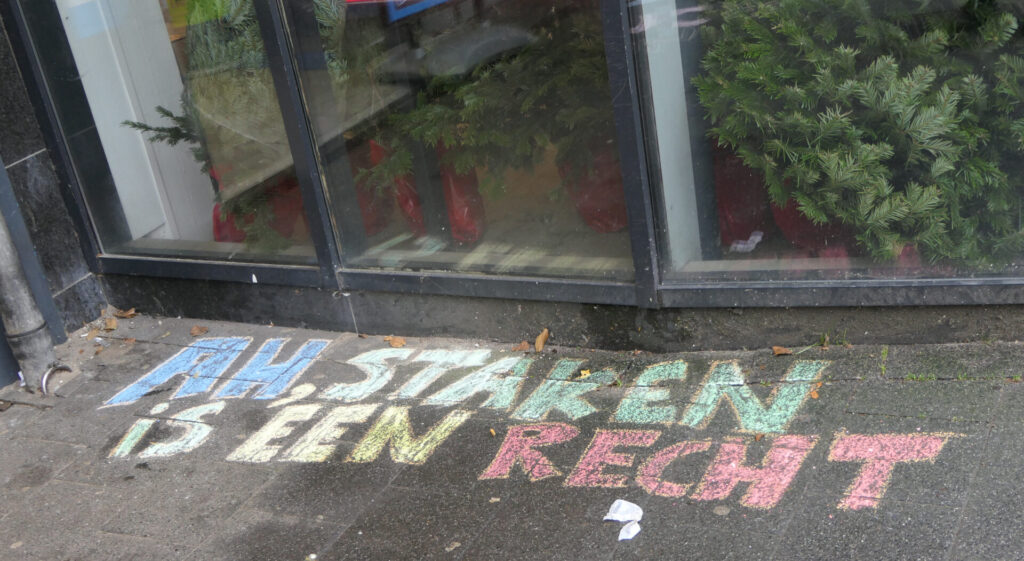 AH, STAKEN
iS EEN RECHT